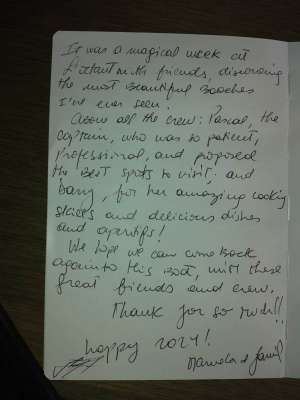 It was a magical week at
with friends, discovering
the most beautiful beaches
I've ever seen!
Above all the crew: Pascal, the
captain, who was so patient,
professional, and proposed
the best spots to visit; and
Dany, for her amazing cooking
skills and delicious dishes
and aperitifs!
We hope we can come back
again to this boat, with these
great friends and crew.
Thank for so much!!
happy 2024!
Manuela &